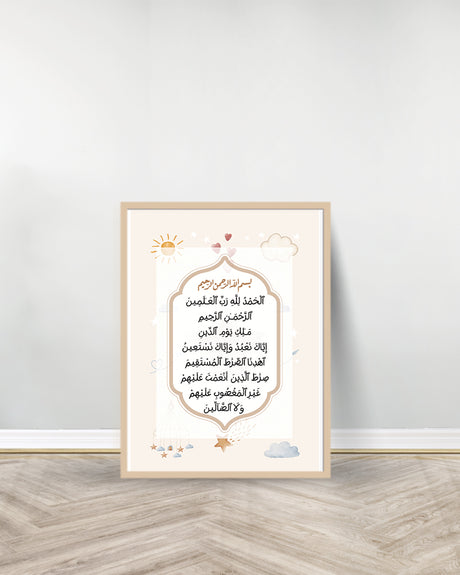 بسم الله الرحمن الرحيم
ٱلۡحَمۡدُ لِلَّهِ رَبِّ ٱلۡعَٰلَمِينَ
ٱلرَّحۡمَٰنِ ٱلرَّحِيمِ
مَٰلِكِ يَوۡمِ ٱلدِّينِ
إِيَّاكَ نَعۡبُدُ وَإِيَّاكَ نَسۡتَعِينُ
ٱهۡدِنَا ٱلصِّرَٰطَ ٱلۡمُسۡتَقِيمَ
صِرَٰطَ ٱلَّذِينَ أَنۡعَمۡتَ عَلَيۡهِمۡ
غَيۡرِ ٱلۡمَغۡضُوبِ عَلَيۡهِمۡ
وَلَا ٱلضَّآلِّينَ